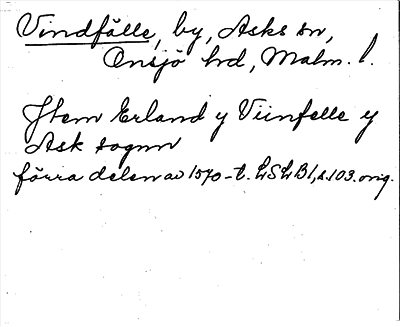 Vindfälle, by, Asks sn,
Onsjö hd, Malm. l.
Item Erland y Viinfelle y
Ask sognn
förra delen av 1570-t. LSLB1, s. 103. orig.